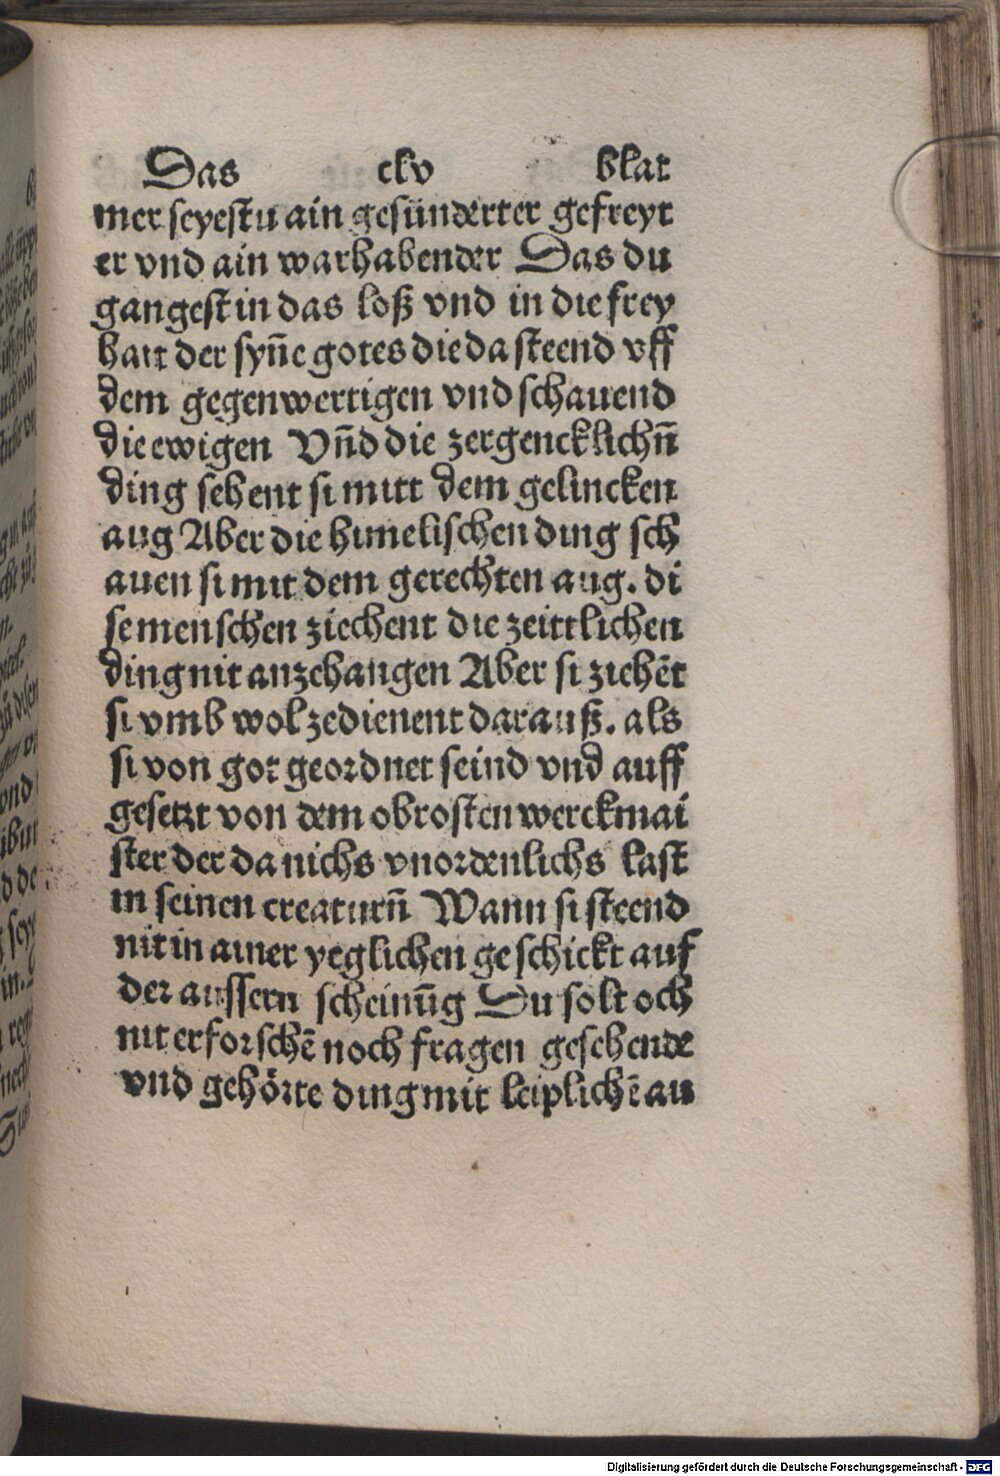 Das clv blat
mer seyestu ain gesünderter gefreyt
er vnd ain warhabender Das du
gangest in das loß vnd in die frey
hait der syñe gotes die da steend vff
dem gegenwertigen vnd schauend
die ewigen Vñd die zergencklichñ
ding sehent si mitt dem gelincken
aug Aber die himelischen ding sch
auen si mit dem gerechten aug. di
se menschen ziechent die zeittlichen
ding nit anzehangen Aber si ziehēt
si vmb wol zedienent darauß. als
si von got geordnet seind vnd auff
gesetzt von dem obrosten werckmai
ster der da nichs vnordenlichs last
in seinen creaturñ Wann si steend
nit in ainer yeglichen geschickt auf
der aussern scheinūg Du solt och
nit erforschē noch fragen gesehende
vnd gehörte ding mit leiplichē au
Digitalisierung gefördert durch die Deutsche Forschungsgemeinschaft - DFG